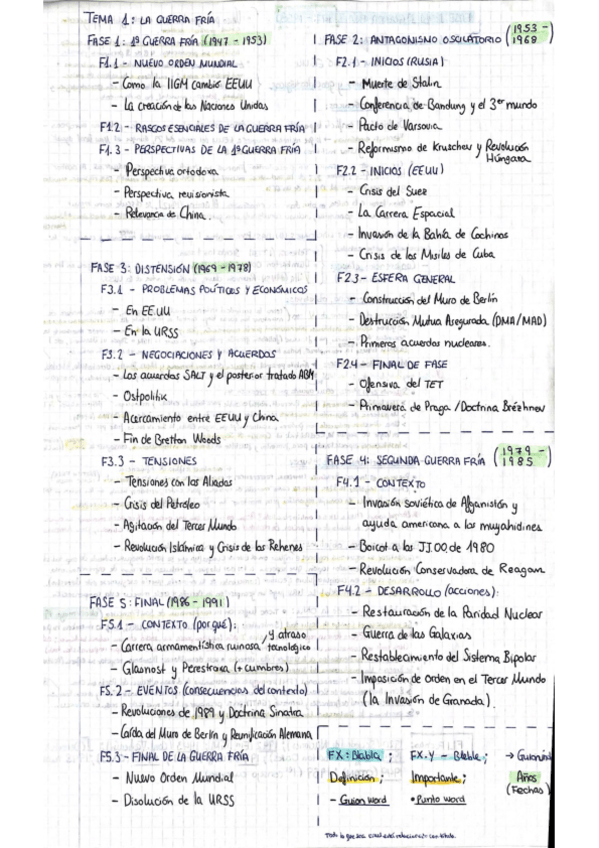 TEMA 1: LA GUERRA FRÍA
FASE 1: 1ª GUERRA FRÍA (1947 - 1953)
F1.1 - NUEVO ORDEN MUNDIAL
- Como la IIGM cambió EEUU
- La creación de las Naciones Unidas
F1.2 - RASGOS ESENCIALES DE LA GUERRA FRÍA
F1.3 - PERSPECTIVAS DE LA 1ª GUERRA FRÍA
- Perspectiva ortodoxa
- Perspectiva revisionista
- Relevancia de China.
FASE 2: ANTAGONISMO OSCILATORIO (1953 - 1969)
F2.1 - INICIOS (RUSIA)
- Muerte de Stalin
- Conferencia de Bandung y el 3er mundo
- Pacto de Varsovia
- Reformismo de Kruschev y Revolución Húngara
F2.2 - INICIOS (EEUU)
- Crisis del Suez
- La Carrera Espacial
- Invasión de la Bahía de Cochinos
- Crisis de los Misiles de Cuba
F2.3 - ESFERA GENERAL
- Construcción del Muro de Berlín
- Destrucción Mutua Asegurada (DMA/MAD)
- Primeros acuerdos nucleares.
F2.4 - FINAL DE FASE
- Ofensiva del TET
- Primavera de Praga / Doctrina Brézhnev
FASE 3: DISTENSIÓN (1969 - 1978)
F3.1 - PROBLEMAS POLÍTICOS Y ECONÓMICOS
- En EEUU
- En la URSS
F3.2 - NEGOCIACIONES Y ACUERDOS
- Los acuerdos SALT y el posterior tratado ABM
- Ostpolitik
- Acercamiento entre EEUU y China
- Fin de Bretton Woods
F3.3 - TENSIONES
- Tensiones con los Aliados
- Crisis del Petróleo
- Agitación del Tercer Mundo
- Revolución Islámica y Crisis de los Rehenes
FASE 4: SEGUNDA GUERRA FRÍA (1979 - 1985)
F4.1 - CONTEXTO
- Invasión soviética de Afganistán y
ayuda americana a los muyahidines
- Boicot a los JJOO de 1980
- Revolución Conservadora de Reagan
F4.2 - DESARROLLO (acciones):
- Restauración de la Paridad Nuclear
- Guerra de las Galaxias
- Restablecimiento del Sistema Bipolar
- Imposición de Orden en el Tercer Mundo
(la Invasión de Granada).
FASE 5: FINAL (1986 - 1991)
F5.1 - CONTEXTO (por qué):
- Carrera armamentística ruinosa / y atraso tecnológico
- Glasnost y Perestroika (+ cumbres)
F5.2 - EVENTOS (consecuencias del contexto)
- Revoluciones de 1989 y Doctrina Sinatra
- Caída del Muro de Berlín y Reunificación Alemana
F5.3 - FINAL DE LA GUERRA FRÍA
- Nuevo Orden Mundial
- Disolución de la URSS
FX: Blabla; FX.Y - Blable; → Guion
Definición; Importante; Años
- Guion word • Punto word (Fechas)